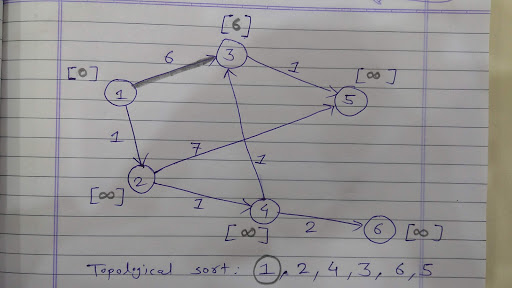 [6]
6
3
1
[0]
[∞]
1
5
1
7
2
1
[∞]
1
4
2
6
[∞]
[∞]
Topological sort: 1, 2, 4, 3, 6, 5